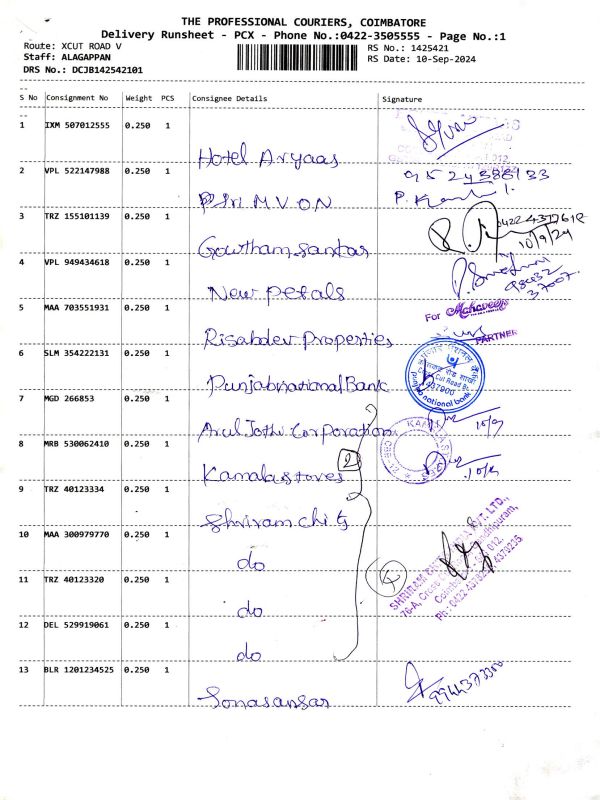 THE PROFESSIONAL COURIERS, COIMBATORE
Delivery Runsheet - PCX - Phone No.:0422-3505555 - Page No.:1
Route: XCUT ROAD V
Staff: ALAGAPPAN
DRS No.: DCJB142542101
RS No.: 1425421
RS Date: 10-Sep-2024
S No Consignment No Weight PCS Consignee Details Signature
1 IXM 507012555 0.250 1
Hotel Aryaas
2 VPL 522147988 0.250 1
9524388133
PSri M V O N
3 TRZ 155101139 0.250 1
0422 4377612
10/9/24
Gowthamsankar
4 VPL 949434618 0.250 1
New petals
5 MAA 703551931 0.250 1
For Mahaveer
PARTNER
Risabdev Properties
6 SLM 354222131 0.250 1
punjab national bank
Punjabnational Bank
7 MGD 266853 0.250 1
10/9
Arul Jothi Corporation
8 MRB 530062410 0.250 1
10/9
Kamalastores 2
9 TRZ 40123334 0.250 1
Shriram chits
10 MAA 300979770 0.250 1
do
11 TRZ 40123320 0.250 1
4
do
12 DEL 529919061 0.250 1
do
13 BLR 1201234525 0.250 1
Sonasansar